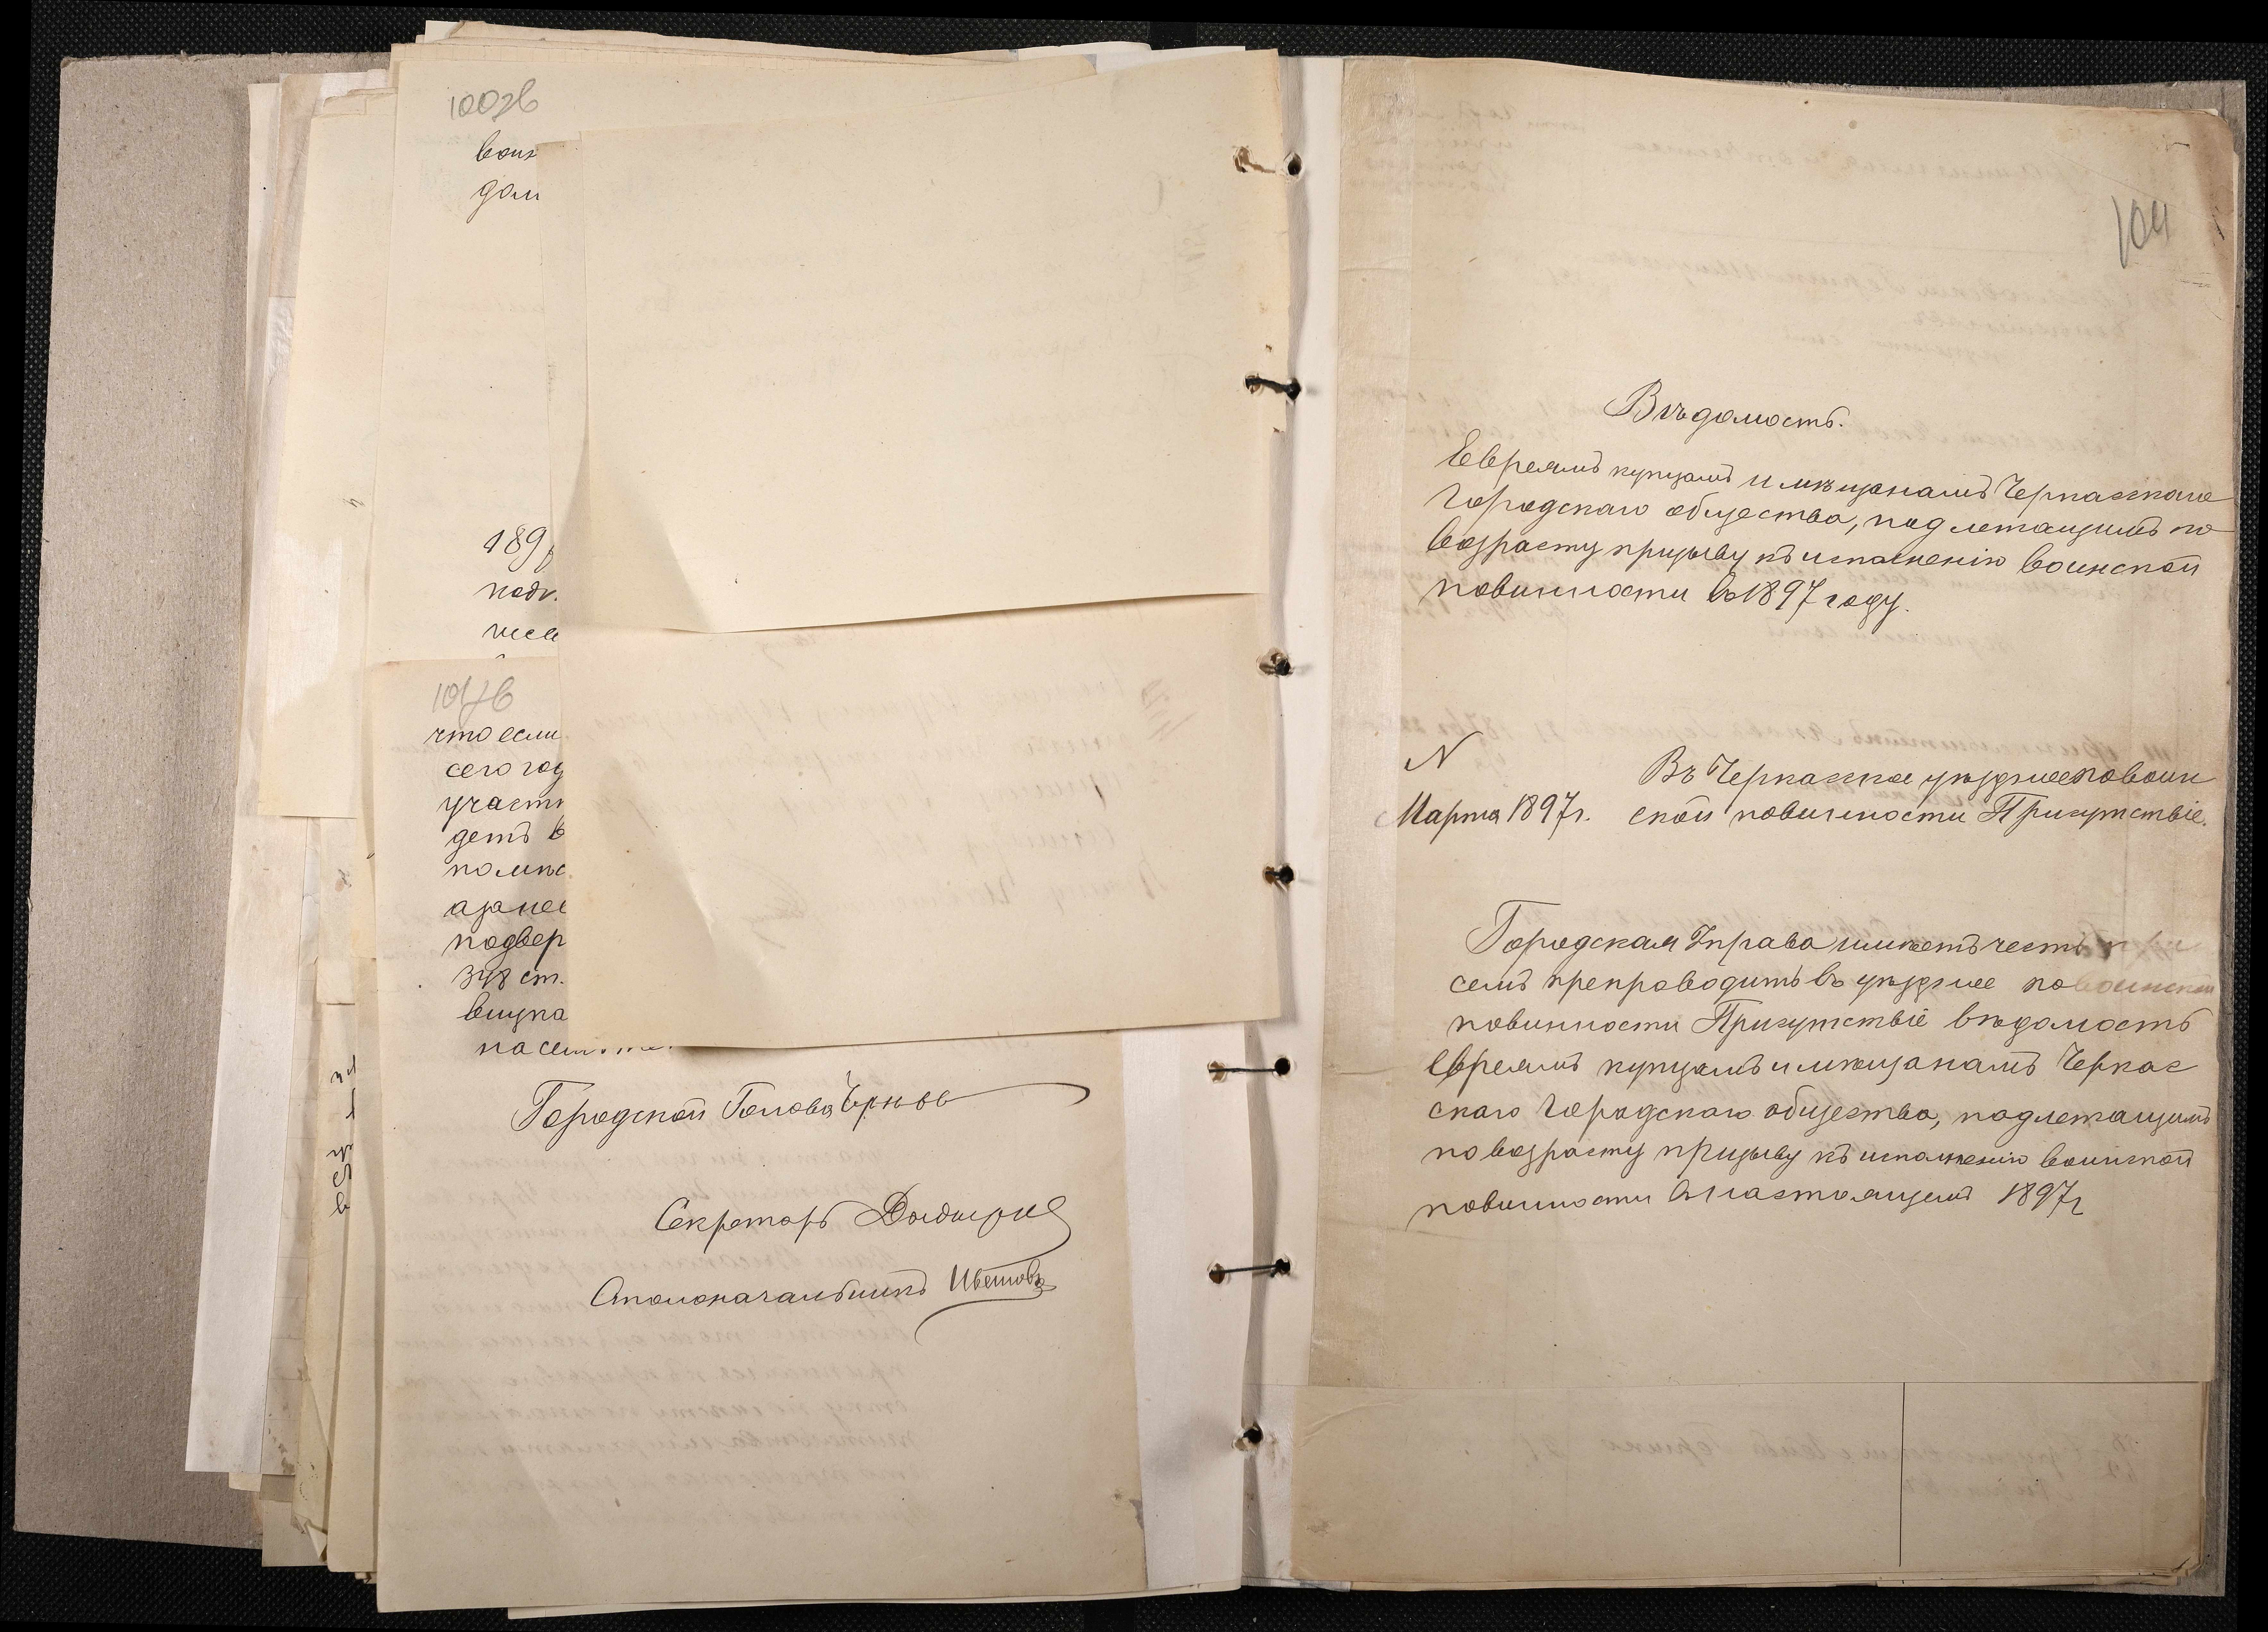 100об
воин
дом
189
подл
1017об
что если
сего год
участк
детъ в
помѣс
азанее
подвер
318 ст.
внука
на сем
Городской Голова
Секретарь
Столоначальникъ Цвѣтовъ
104
Вѣдомость.
Евреямъ купцамъ и мѣщанамъ Черкасскаго
Городскаго общества, подлежащимъ по
возрасту призыву къ исполненію воинской
повинности въ 1897 году.
N
Марта 1897 г.
Въ Черкасское уѣздное по воин
ской повинности Присутствіе.
Городская Управа имѣетъ честь при
семъ препроводить въ уѣздное по воинской
повинности Присутствіе вѣдомость
Евреямъ купцамъ и мѣщанамъ Черкас
скаго Городскаго общества, подлежащимъ
по возрасту призыву къ исполненію воинской
повинности въ настоящемъ 1897 г